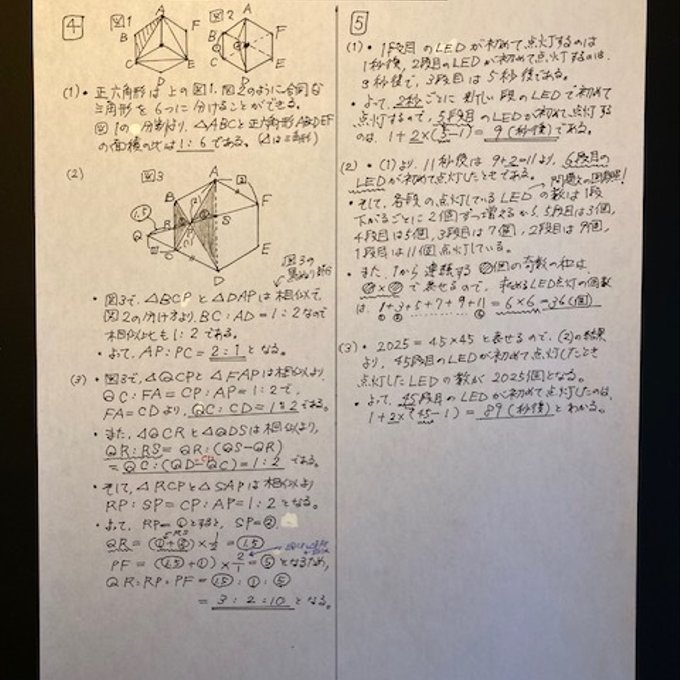 4
図1
図2
(1)・正六角形は上の図1、図2のように合同な
三角形を6つに分けることができる。
図1の分割より、△ABCと正六角形ABCDEF
の面積の比は1:6である。(△は三角形)
(2)
図3
図3の
・図3で、△BCPと△DAPは相似で、
図2の分け方より、BC:AD=1:2なので
相似比も1:2である。
・よって、AP:PC=2:1となる。
(3)・図3で、△QCPと△FAPは相似より、
QC:FA=CP:AP=1:2で、
FA=CDより、QC:CD=1:2である。
・また、△QCRと△QDSは相似より、
QR:RS=QR:(QS-QR)
=QC:(QD-QC)=1:2である。
・そして、△RCPと△SAPは相似より
RP:SP=CP:AP=1:2となる。
・よって、RP=①とすると、SP=②、
QR=(①+②)×1/2=1.5
PF=(1.5+①)×2/1=⑤となるため、
QR:RP:PF=1.5:①:⑤
=3:2:10となる。
5
(1)・1段目のLEDが初めて点灯するのは
1秒後、2段目のLEDが初めて点灯するのは
3秒後で、3段目は5秒後である。
・よって、2秒ごとに新しい段のLEDで初めて
点灯するので、5段目のLEDが初めて点灯する
のは、1+2×(5-1)=9(秒後)である。
(2)・(1)より、11秒後は9+2=11より、6段目の
LEDが初めて点灯したときである。
・そして、各段の点灯しているLEDの数は1段
下がるごとに2個ずつ増えるから、5段目は3個、
4段目は5個、3段目は7個、2段目は9個、
1段目は11個点灯している。
・また、1から連続する個の奇数の和は、
で表せるので、求めるLED点灯の個数
は、1+3+5+7+9+11=6×6=36(個)
(3)・2025=45×45と表せるので、(2)の結果
より、45段目のLEDが初めて点灯したとき
点灯したLEDの数が2025個となる。
・よって、45段目のLEDが初めて点灯したのは、
1+2×(45-1)=89(秒後)とわかる。